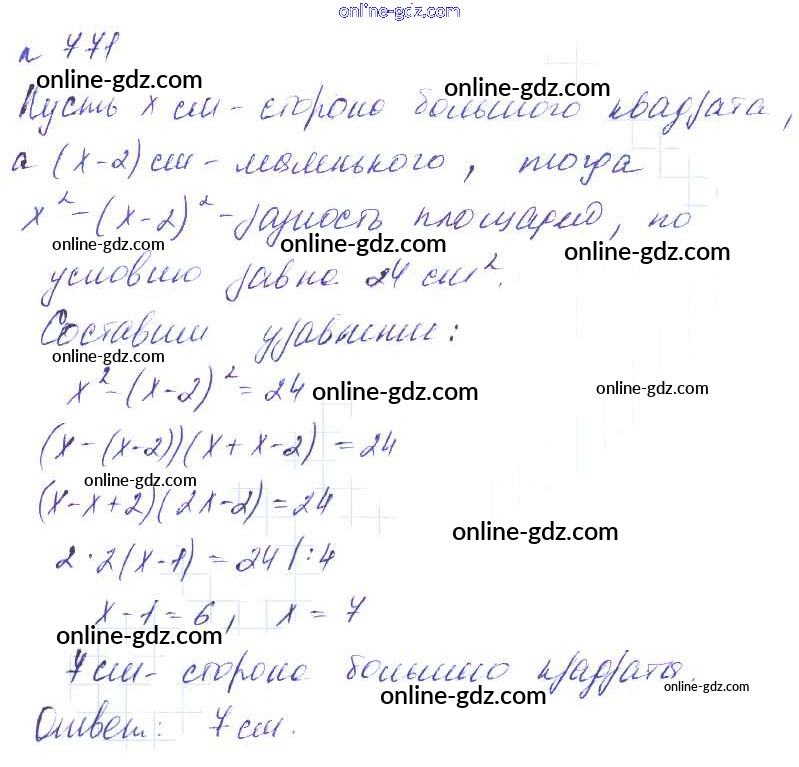 online-gdz.com
№ 771
online-gdz.com online-gdz.com
Пусть x см - сторона большого квадрата,
а (x-2) см - маленького, тогда
x² - (x-2)² - разность площадей, по
online-gdz.com online-gdz.com online-gdz.com
условию равна 24 см².
Составим уравнение:
online-gdz.com
x² - (x-2)² = 24
online-gdz.com online-gdz.com
(x - (x-2))(x + x - 2) = 24
online-gdz.com
(x - x + 2)(2x - 2) = 24
online-gdz.com
2 · 2(x-1) = 24 | : 4
x - 1 = 6, x = 7
online-gdz.com
7 см - сторона большого квадрата.
online-gdz.com online-gdz.com
Ответ: 7 см.